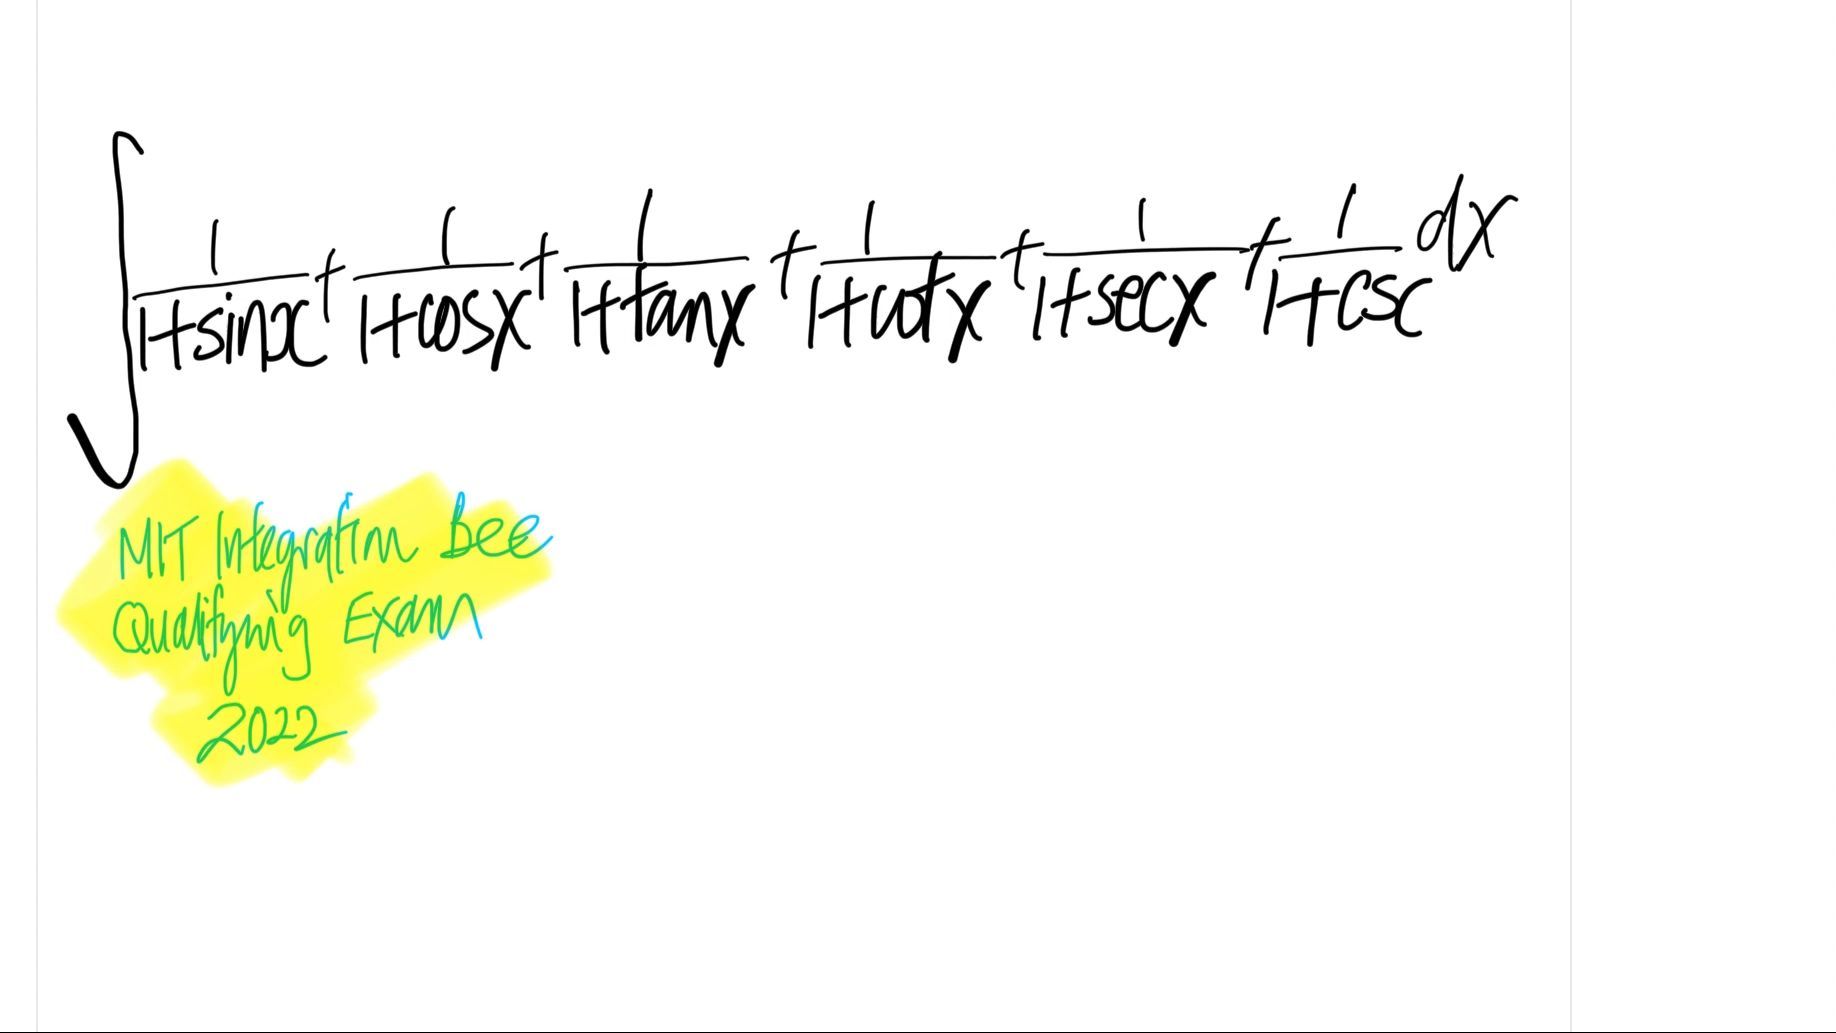 ∫ 1/(1+sinx) + 1/(1+cosx) + 1/(1+tanx) + 1/(1+cotx) + 1/(1+secx) + 1/(1+csc) dx
MIT Integration Bee
Qualifying Exam
2022